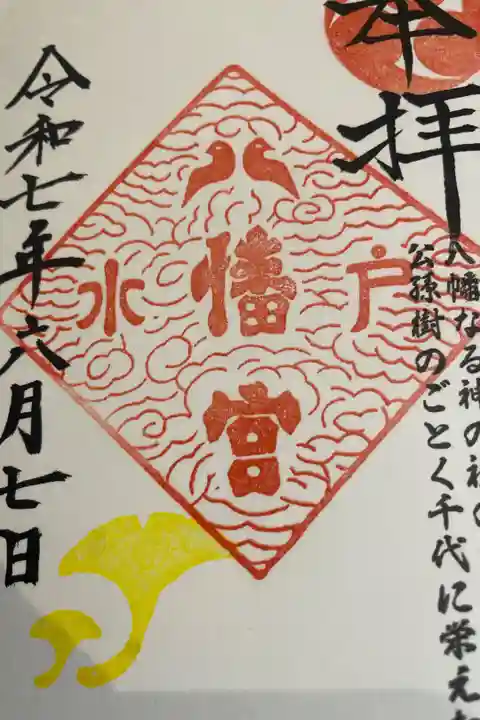 奉拝
八幡なる神の社の
公孫樹のごとく千代に栄え
水戸
八幡宮
令和七年六月七日